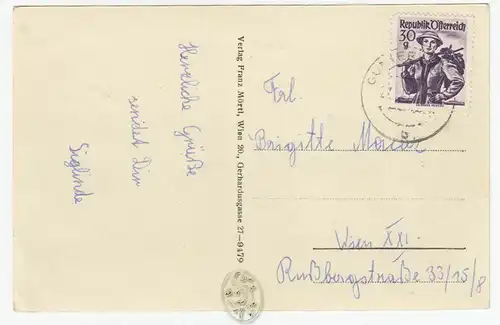 Herzliche Grüße
sendet Dir
Siglinde
Verlag Franz Mörtl, Wien 20., Gerhardusgasse 27–9479
Republik Österreich
30
g
Frl.
Brigitte
Wien XXI.
Rußbergstraße 33/15/8